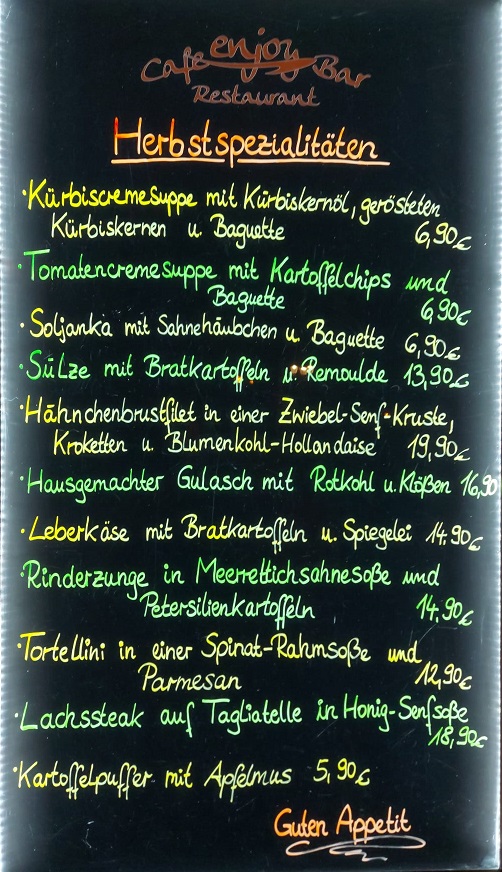 Café enjoy Bar
Restaurant
Herbstspezialitäten
·Kürbiscremesuppe mit Kürbiskernöl, gerösteten
Kürbiskernen u. Baguette 6,90€
·Tomatencremesuppe mit Kartoffelchips und
Baguette 6,90€
·Soljanka mit Sahnehäubchen u. Baguette 6,90€
·Sülze mit Bratkartoffeln u. Remoulde 13,90€
·Hähnchenbrustfilet in einer Zwiebel-Senf-Kruste,
Kroketten u. Blumenkohl-Hollandaise 19,90€
·Hausgemachter Gulasch mit Rotkohl u. Klößen 16,90
·Leberkäse mit Bratkartoffeln u. Spiegelei 14,90€
·Rinderzunge in Meerrettichsahnesoße und
Petersilienkartoffeln 14,90€
·Tortellini in einer Spinat-Rahmsoße und
Parmesan 12,90€
·Lachssteak auf Tagliatelle in Honig-Senfsoße
18,90€
·Kartoffelpuffer mit Apfelmus 5,90€
Guten Appetit